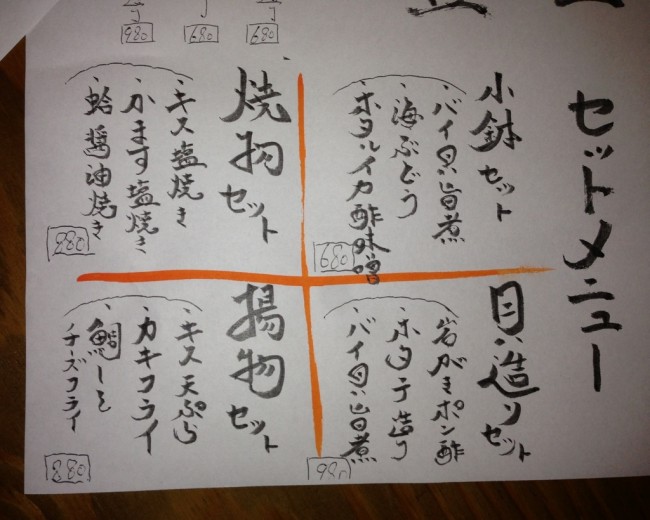 680
680
980
セットメニュー
小鉢セット
・バイ貝旨煮
・海ぶどう
・ホタルイカ酢味噌
680
貝造りセット
・岩がきポン酢
・ホタテ造り
・バイ貝旨煮
980
焼物セット
・キス塩焼き
・かます塩焼き
・蛤醤油焼き
980
揚物セット
・キス天ぷら
・カキフライ
・鯛しそ
チーズフライ
880